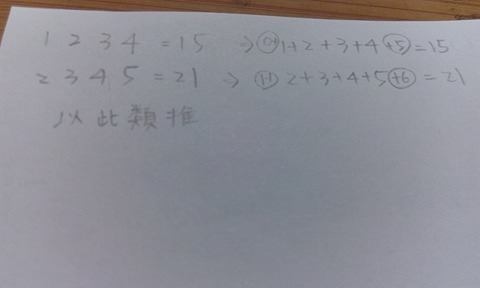 1 2 3 4 = 15 ⇒ 0+1+2+3+4+5=15
2 3 4 5 = 21 ⇒ 1+2+3+4+5+6=21
以此類推